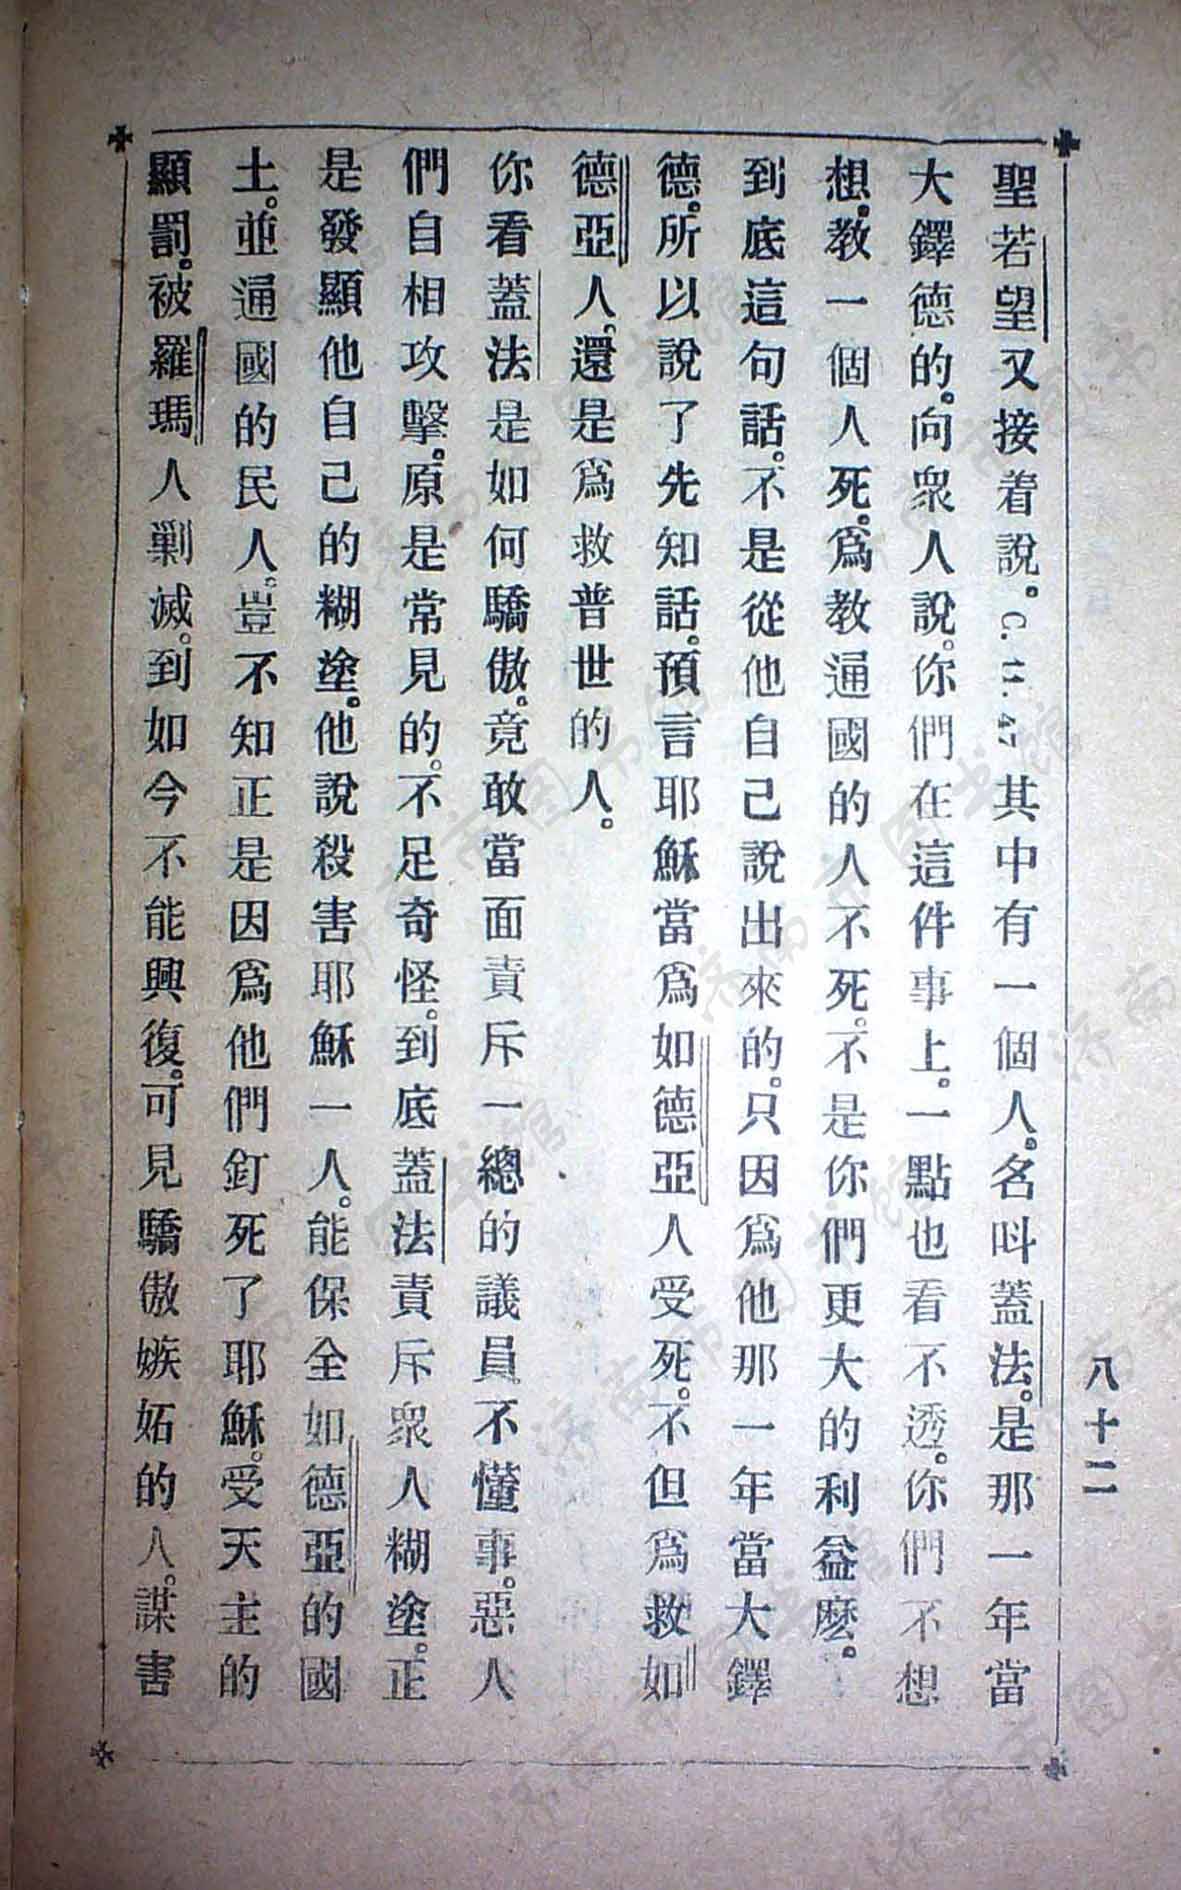 聖若望又接着說。C. 11. 47其中有一個人。名呌蓋法。是那一年當
大鐸德的。向衆人說。你們在這件事上。一點也看不透。你們不想
想。教一個人死。爲教通國的人不死。不是你們更大的利益麽。
到底這句話。不是從他自己說出來的。只因爲他那一年當大鐸
德。所以說了先知話。預言耶穌當爲如德亞人受死。不但爲救如
德亞人。還是爲救普世的人。
你看蓋法是如何驕傲。竟敢當面責斥一總的議員不懂事。惡人
們自相攻擊。原是常見的。不足奇怪。到底蓋法責斥衆人糊塗。正
是發顯他自己的糊塗。他說殺害耶穌一人。能保全如德亞的國
土。並通國的民人。豈不知正是因爲他們釘死了耶穌。受天主的
顯罰。被羅瑪人剿滅。到如今不能興復。可見驕傲嫉妬的人。謀害
八十二
济南市图书馆